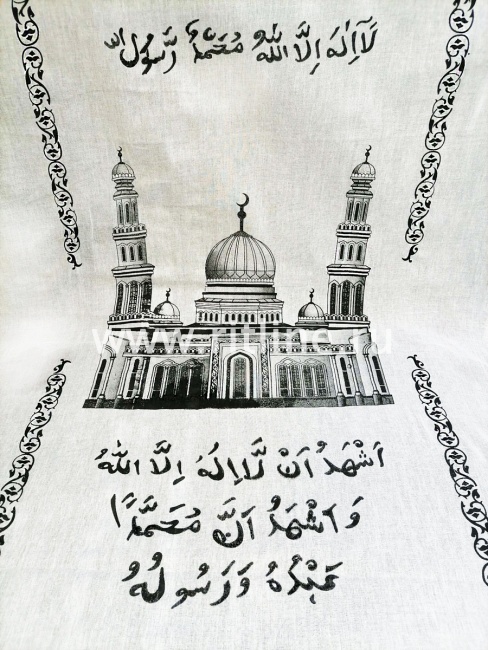 لَآ اِلٰهَ اِلَّا اللهُ مُحَمَّدٌ رَّسُولُ الله
www.ritline.ru
اَشْهَدُ اَنْ لَّا اِلٰهَ اِلَّا اللهُ
وَ اَشْهَدُ اَنَّ مُحَمَّدًا
عَبْدُهُ وَرَسُولُهُ